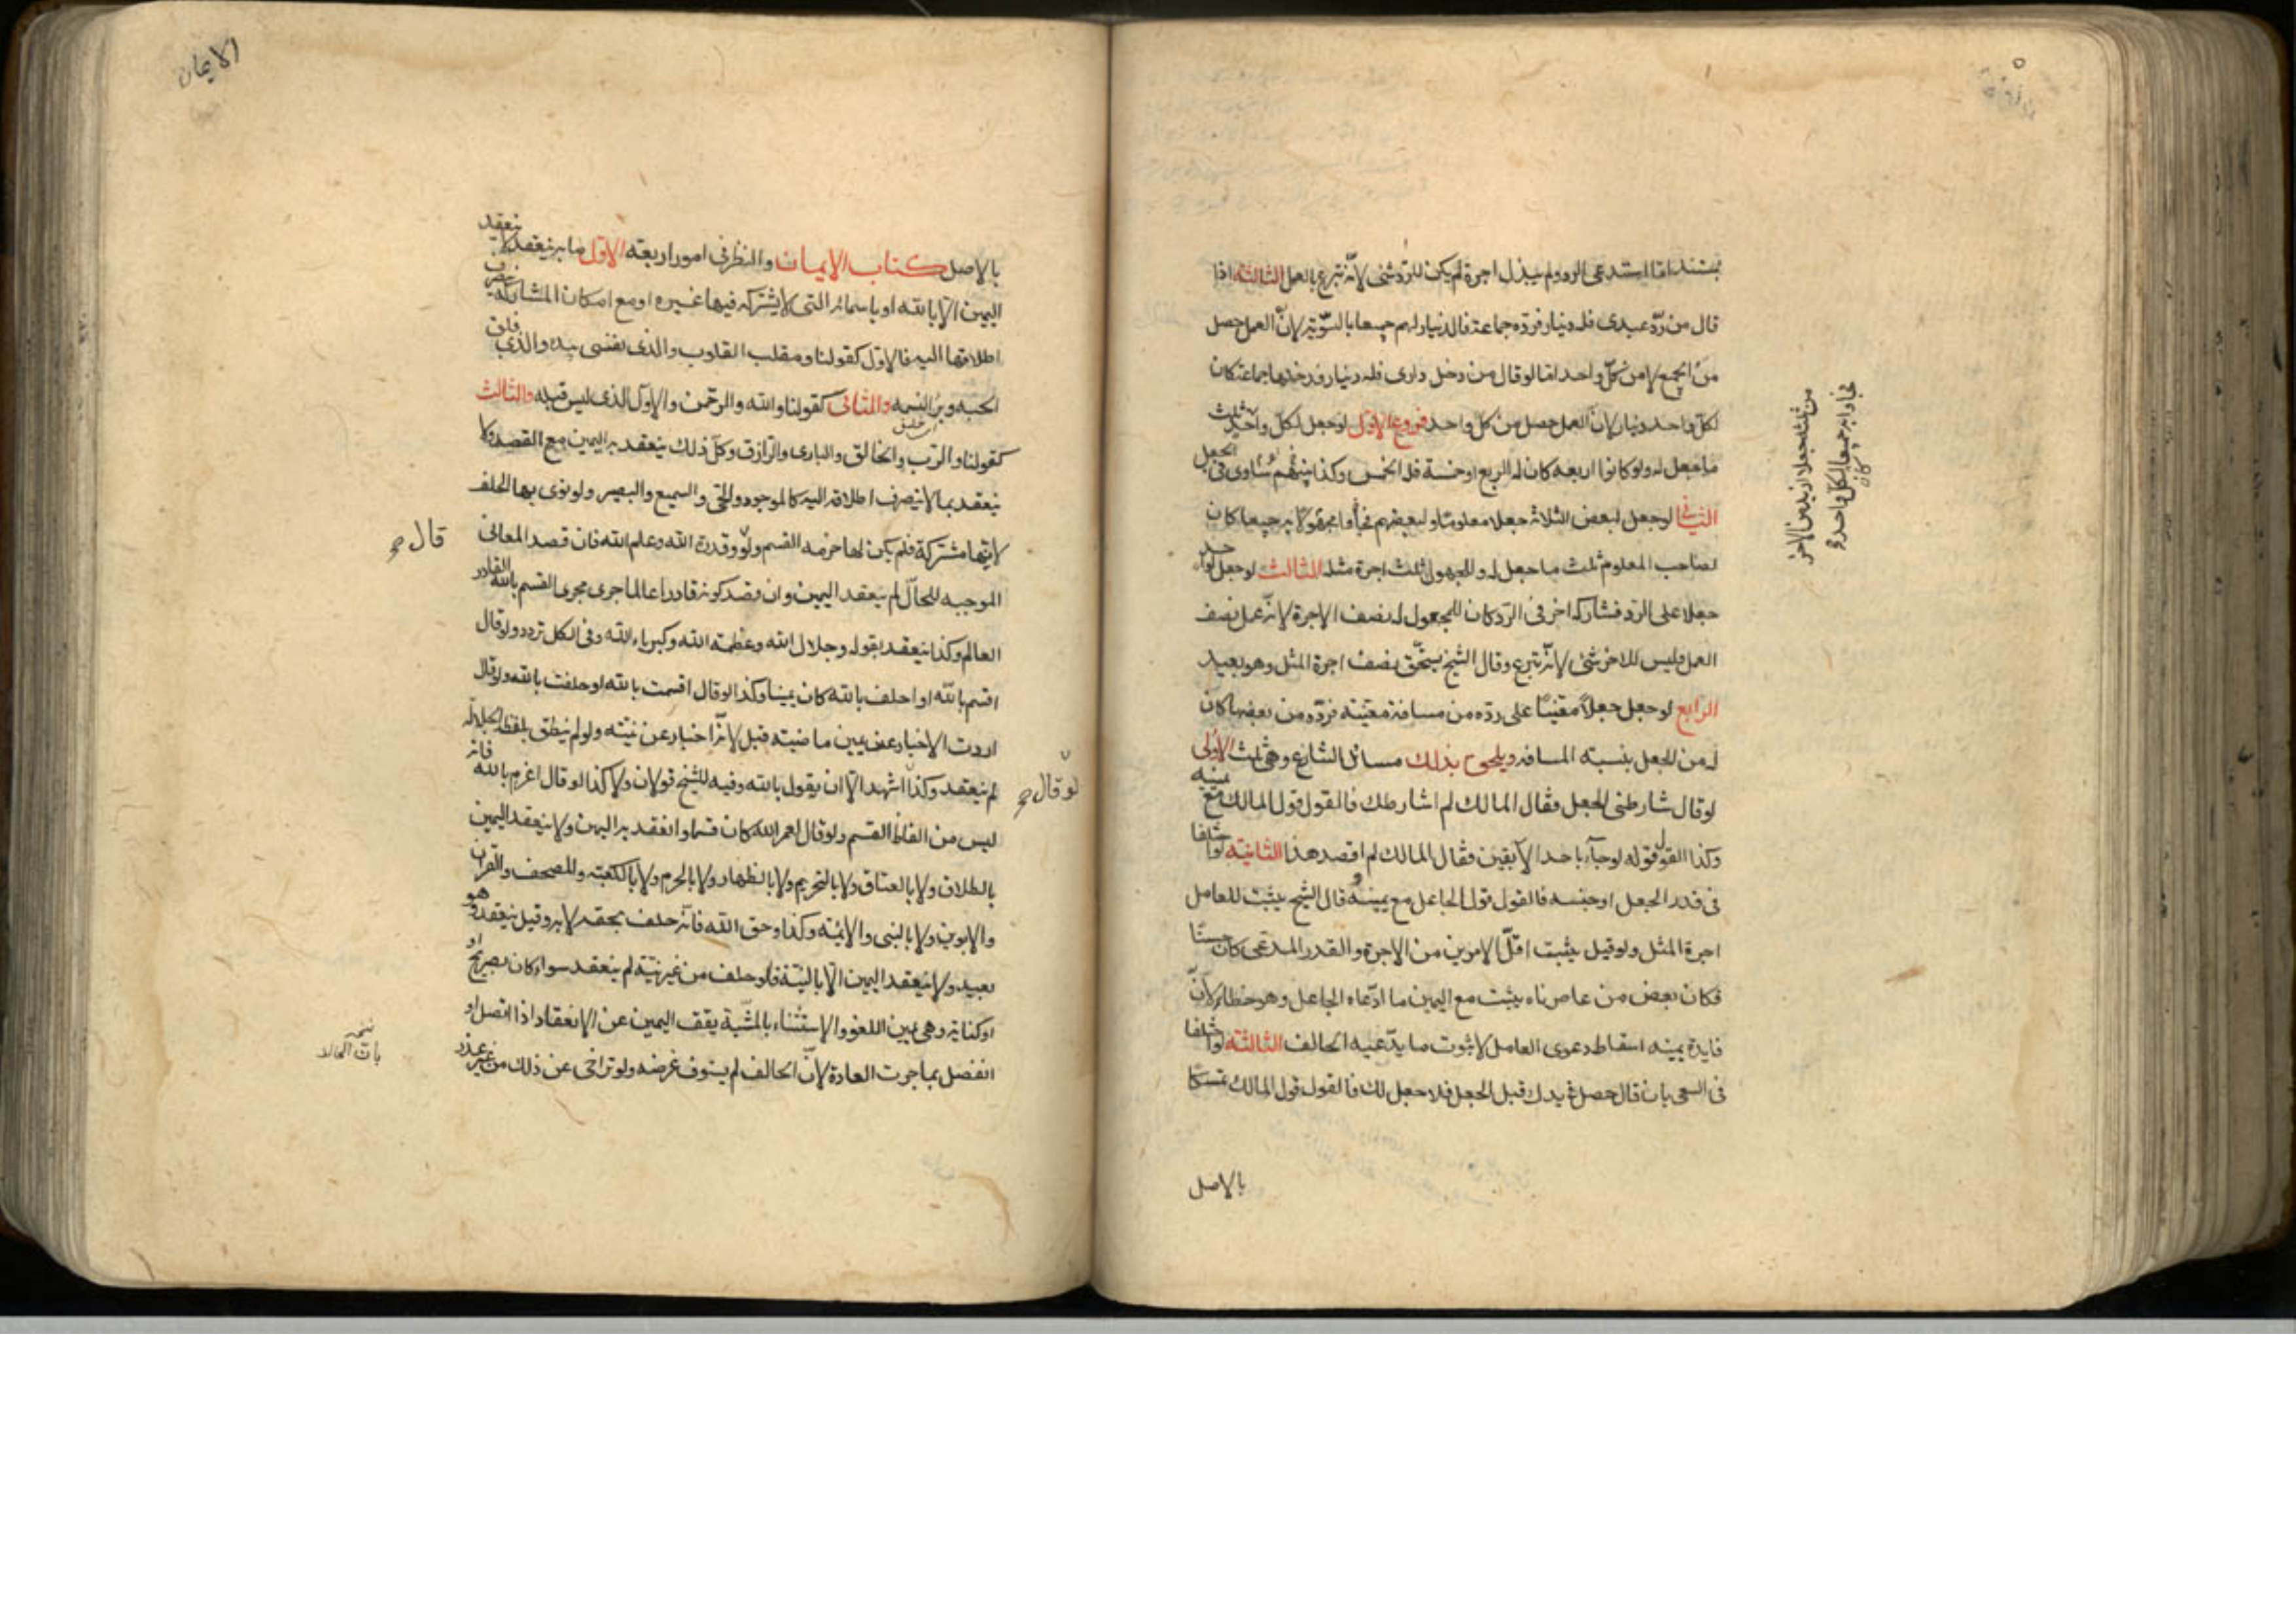 بمتند اما استدعى الرد ولم يبذل اجرة لم يكن للراد شئ لانه تبرع بالعمل الثالثة اذا
قال من رد عبدى فله دينار فرده جماعة فالدينار لهم جميعا بالسوية لان العمل حصل
من الجميع لا من كل واحد اما لو قال من دخل دارى فله دينار فدخلها جماعة كان
لكل واحد دينار لان العمل حصل من كل واحد فروع الاول لو جعل لكل واحد من ثلثة
جعلا ازيد من الاخر فجاؤا به جميعا كان لكل واحد
ثلث ما جعل له ولو كانوا اربعة كان له الربع او خمسة فله الخمس وكذا لو ساوى بينهم فى الجعل
الثانى لو جعل لبعض الثلاثة جعلا معلوما ولبعضهم مجهولا فجاؤا به جميعا كان
لصاحب المعلوم ثلث ما جعل له وللمجهول ثلث اجرة مثله الثالث لو جعل لواحد
جعلا على الرد فشاركه اخر فى الرد كان للمجعول له نصف الاجرة لانه عمل نصف
العمل وليس للاخر شئ لانه تبرع وقال الشيخ يستحق نصف اجرة المثل وهو بعيد
الرابع لو جعل جعلا معينا على رده من مسافة معينة فرده من بعضها كان
له من الجعل بنسبة المسافة ويلحق بذلك مسائل التنازع وهى ثلث الاولى
لو قال شارطنى الجعل فقال المالك لم اشارطك فالقول قول المالك مع يمينه
وكذا القول قوله لو جاء باحد الابقين فقال المالك لم اقصد هذا الثانية لو اختلفا
فى قدر الجعل او جنسه فالقول قول الجاعل مع يمينه و قال الشيخ يثبت للعامل
اجرة المثل ولو قيل يثبت اقل الامرين من الاجرة والقدر المدعى كان حسنا
فكان بعض من عاصرناه يثبت مع اليمين ما ادعاه الجاعل وهو خطا لان
فايدة يمينه اسقاط دعوى العامل لا ثبوت ما يدعيه الحالف الثالثة لو اختلفا
فى السعى بان قال حصل فى يدك قبل الجعل فلا جعل لك فالقول قول المالك تمسكا
بالاصل
الايمان
بالاصل كتاب الايمان والنظر فى امور اربعة الاول ما به ينعقد لا ينعقد
اليمين الا بالله او باسمائه التى لا يشتركه فيها غيره او مع امكان المشاركة ينصرف
اطلاقها اليه فالاول كقولنا ومقلب القلوب والذى نفسى بيده والذى فلق
الحبة وبرأ النسمة والثانى كقولنا والله والرحمن والاول الذى ليس قبله والثالث
كقولنا والرب والخالق والبارى والرازق وكل ذلك ينعقد به اليمين مع القصد ولا
ينعقد بما لا ينصرف اطلاقه اليه كالموجود والحى والسميع والبصير ولو نوى بها الحلف
لانها مشتركة فلم يكن لها حرمة القسم ولو قال وقدرة الله وعلم الله فان قصد المعانى
الموجبة للحال لم ينعقد اليمين وان قصد كونه قادرا عالما جرى مجرى القسم بالله القادر
العالم وكذا ينعقد بقوله وجلال الله وعظمة الله وكبرياء الله وفى الكل تردد ولو قال
اقسم بالله او احلف بالله كان يمينا وكذا لو قال اقسمت بالله او حلفت بالله ولو قال
اردت الاخبار عن يمين ماضية قبل لانه اخبار عن نيته ولو لم ينطق بلفظ الجلالة
لم ينعقد وكذا لو قال اشهد الا ان يقول بالله وفيه للشيخ قولان ولا كذا لو قال اعزم بالله فانه
ليس من الفاظ القسم ولو قال لعمر الله كان قسما وانعقد به اليمين ولا ينعقد اليمين
بالطلاق ولا بالعتاق ولا بالتحريم ولا بالظهار ولا بالحرم ولا بالكعبة والمصحف والقران
والابوين ولا بالنبى والائمة وكذا وحق الله فانه حلف بحقه لا به وقيل ينعقد وهو
بعيد ولا ينعقد اليمين الا بالنية فلو حلف من غير نية لم ينعقد سواء كان بصريح او
او كناية وهى يمين اللغو والاستثناء بالمشية يقف اليمين عن الانعقاد اذا اتصل او
انفصل بما جرت العادة لان الحالف لم يستوف غرضه ولو تراخى عن ذلك من غير عذر